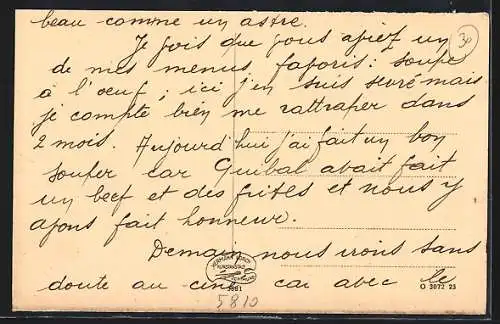 beau comme un astre.
Je vois que vous aviez un
de mes menus favoris : soupe
à l'oeuf ; ici j'en suis sevré mais
je compte bien me rattraper dans
2 mois. Aujourd'hui j'ai fait un bon
souper car Guibal avait fait
un beef et des frites et nous y
avons fait honneur.
Demain nous irons sans
doute au ciné car avec le
30
3881
O 3072 23
5810